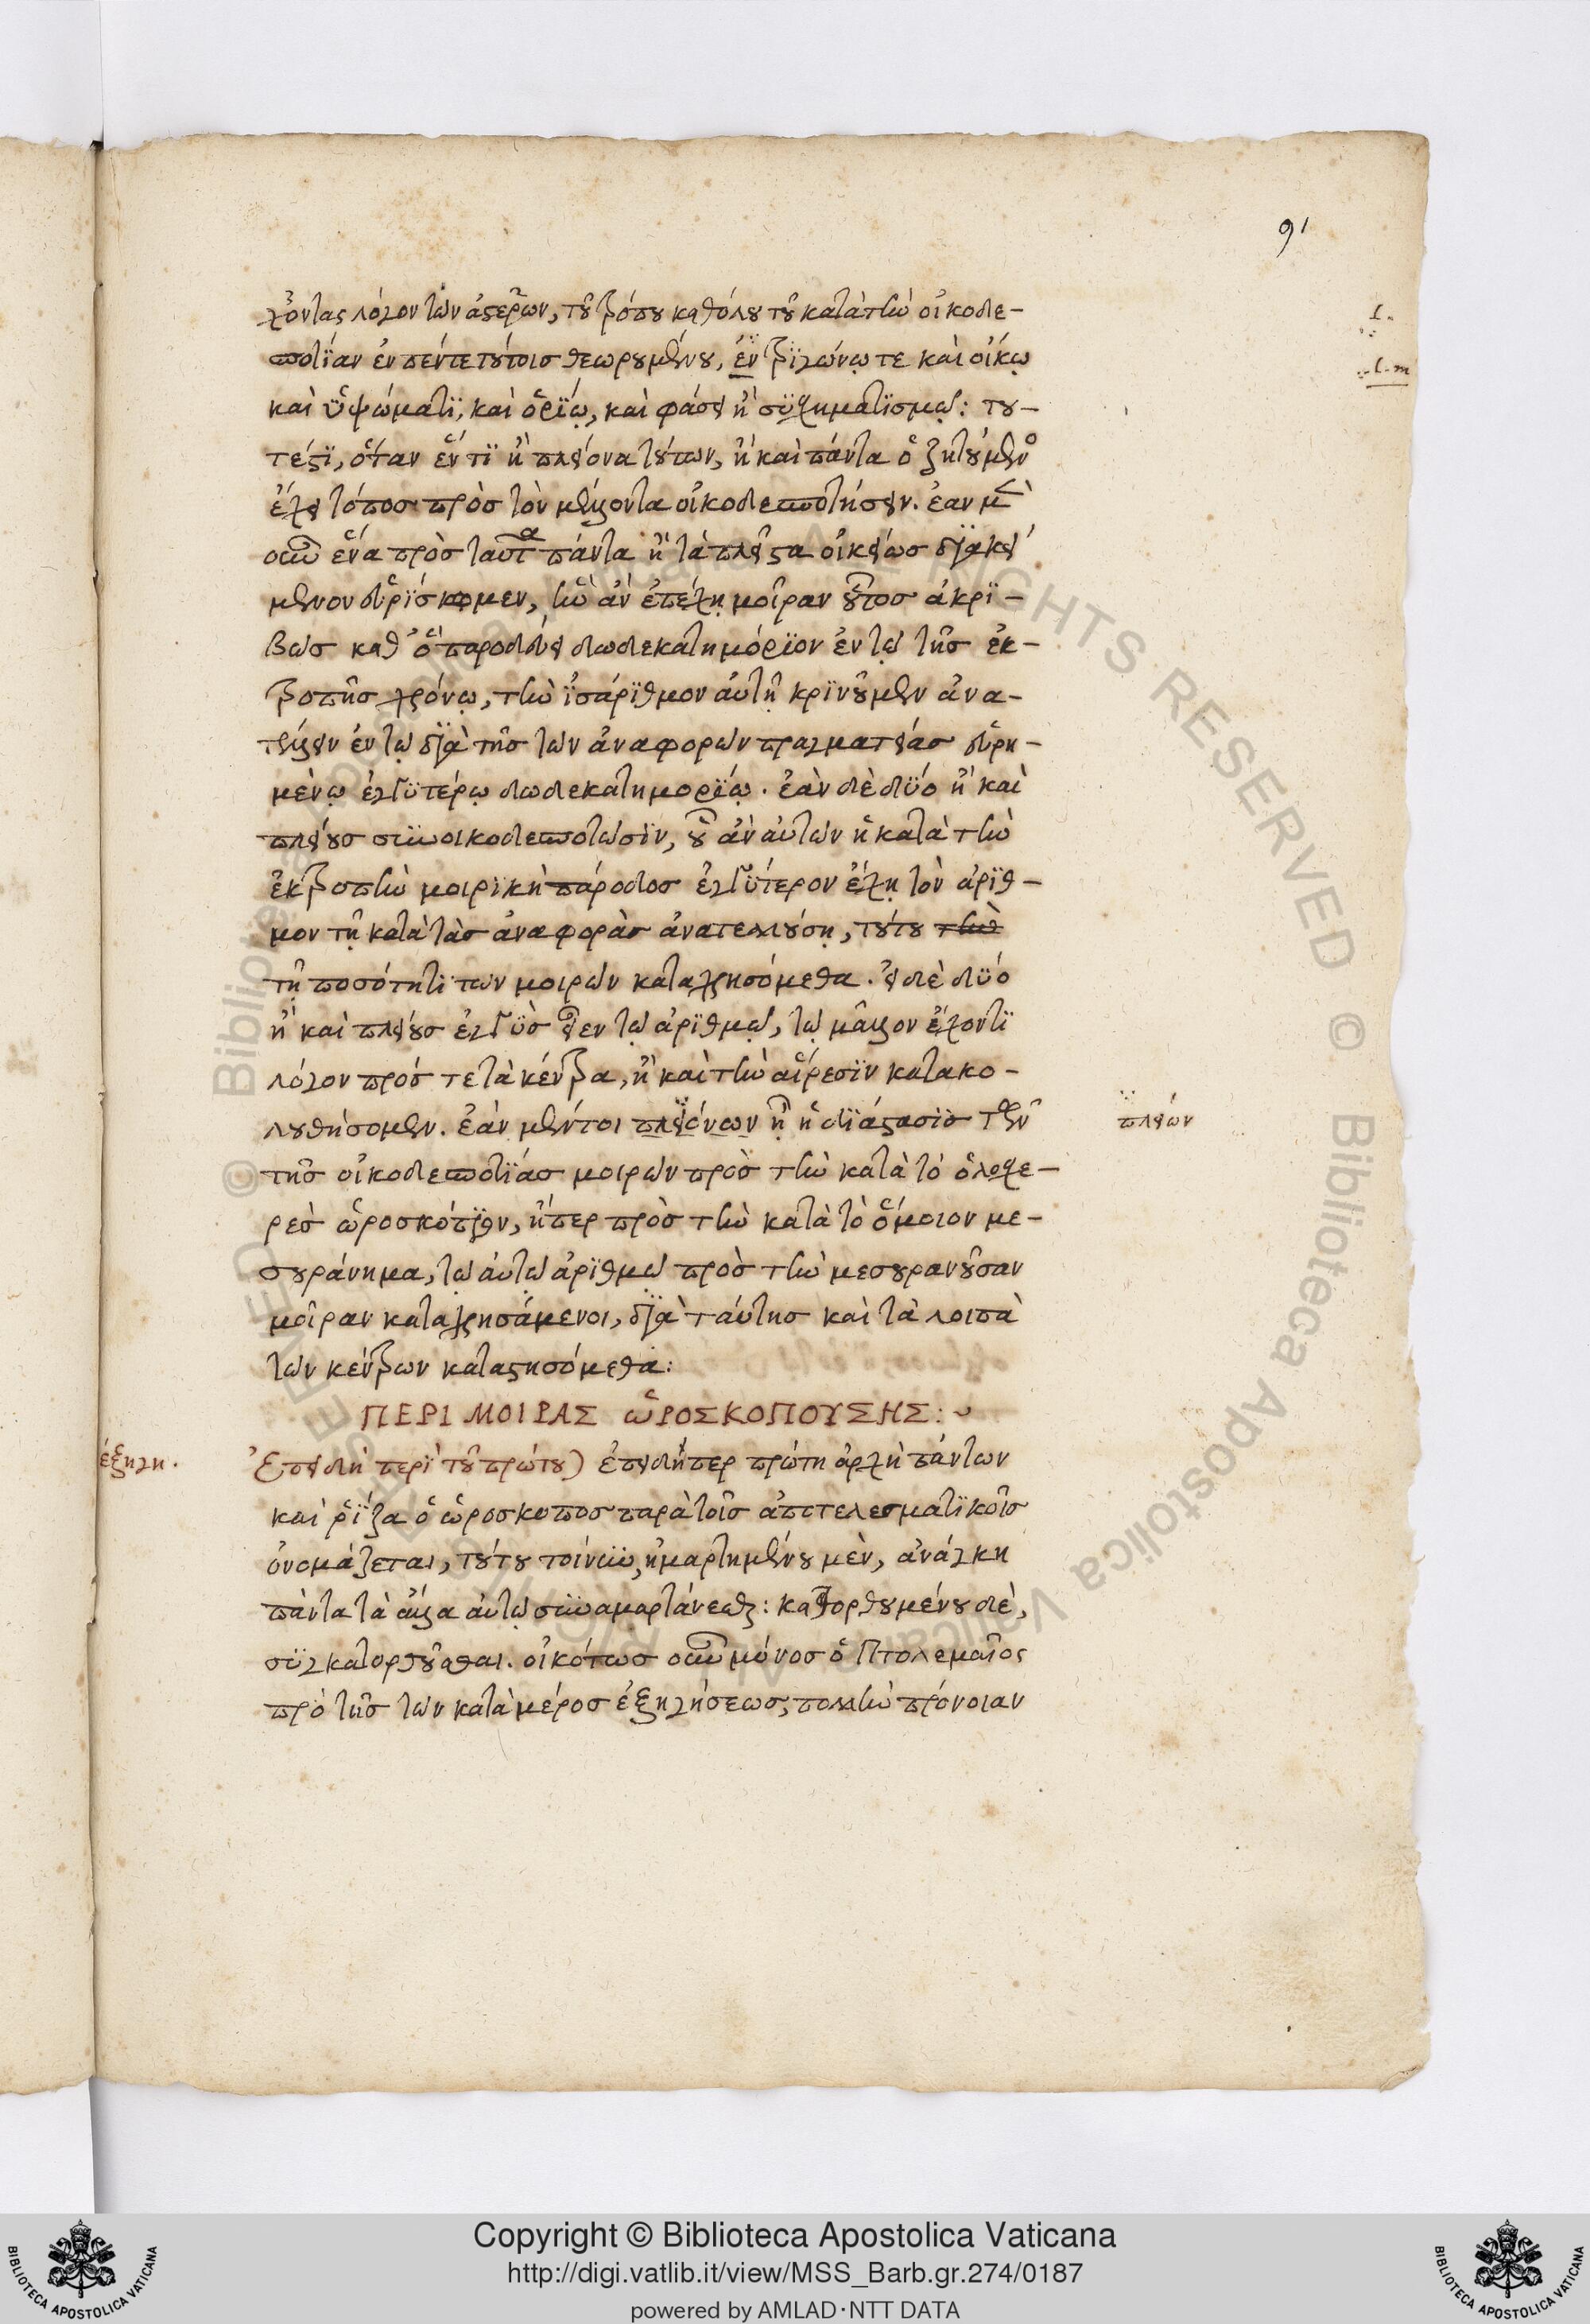 91
χόντας λόγον τῶν ἀστέρων, τοῦ τρόπου καθόλου τοῦ κατὰ τὴν οἰκοδε-
σποτίαν ἐν πέντε τούτοις θεωρουμένου, ἐν τριγώνῳ τε καὶ οἴκῳ
καὶ ὑψώματι, καὶ ὁρίῳ, καὶ φάσει ἢ συσχηματισμῷ: του-
τέστι, ὅταν ἕν τι ἢ πλείονα τούτων, ἢ καὶ πάντα ὁ ζητούμενος
ἔχει τόπος πρὸς τὸν μέλλοντα οἰκοδεσποτήσειν. ἐὰν μὲν
οὖν ἕνα πρὸς ταῦτα πάντα ἢ τὰ πλεῖστα οἰκείως διακεί
μενον εὑρίσκομεν, ἣν ἂν ἐπέχῃ μοῖραν οὗτος ἀκρι-
βῶς καθ' ὃ παροδεύει δωδεκατημόριον ἐν τῷ τῆς ἐκ-
τροπῆς χρόνῳ, τὴν ἰσάριθμον αὐτῇ κρινοῦμεν ἀνα-
τέλλειν ἐν τῷ διὰ τῆς τῶν ἀναφορῶν πραγματείας εὑρη-
μένῳ ἐγγυτέρῳ δωδεκατημορίῳ. ἐὰν δὲ δύο ἢ καὶ
πλείους συνοικοδεσποτῶσιν, οὗ ἂν αὐτῶν ἡ κατὰ τὴν
ἐκτροπὴν μοιρικὴ πάροδος ἐγγύτερον ἔχῃ τὸν ἀριθ-
μον τῇ κατὰ τὰς ἀναφορὰς ἀνατελλούσῃ, τούτου τὴν
τῇ ποσότητι τῶν μοιρῶν καταχρησόμεθα. εἰ δὲ δύο
ἢ καὶ πλείους ἐγγὺς εἶεν τῷ ἀριθμῷ, τῷ μᾶλλον ἔχοντι
λόγον πρός τε τὰ κέντρα, ἢ καὶ τὴν αἵρεσιν κατακο-
λουθήσομεν. ἐὰν μέντοι πλειόνων ᾖ ἡ διάστασις τῶν
πλειών
τῆς οἰκοδεσποτίας μοιρῶν πρὸς τὴν κατὰ τὸ ὁλοσχε-
ρὲς ὡροσκόπιον, ἤπερ πρὸς τὴν κατὰ τὸ ὅμοιον με-
σουράνημα, τῷ αὐτῷ ἀριθμῷ πρὸς τὴν μεσουρανοῦσαν
μοῖραν καταχρησάμενοι, διὰ ταύτης καὶ τὰ λοιπὰ
τῶν κέντρων καταστησόμεθα:
ΠΕΡΙ ΜΟΙΡΑΣ ὡΡΟΣΚΟΠΟΥΣΗΣ:
ἐξηγη.
Ἐπειδὴ περὶ τοῦ πρώτου) ἐπειδήπερ πρώτη ἀρχὴ πάντων
καὶ ῥίζα ὁ ὡροσκοπος παρὰ τοῖς ἀποτελεσματικοῖς
ὀνομάζεται, τούτου τοίνυν, ἡμαρτημένου μὲν, ἀνάγκη
πάντα τὰ ἄλλα αὐτῷ συναμαρτάνεσθαι: κατορθουμένου δὲ,
συγκατορθοῦσθαι. οἰκότως οὖν μόνος ὁ Πτολεμαῖος
πρὸ τῆς τῶν κατὰ μέρος ἐξηγήσεως, πολλὴν πρόνοιαν
Copyright © Biblioteca Apostolica Vaticana
http://digi.vatlib.it/view/MSS_Barb.gr.274/0187
powered by AMLAD·NTT DATA